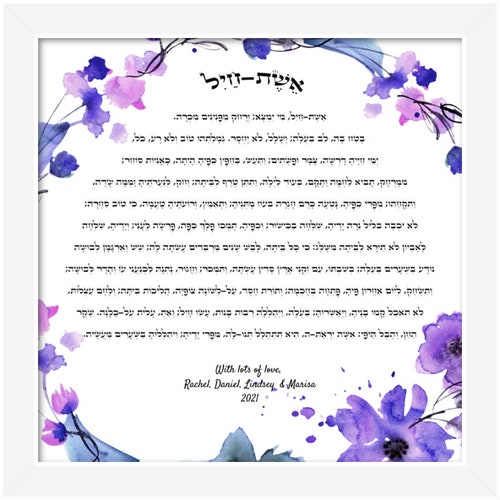 אֵשֶׁת-חַיִל
אֵשֶׁת-חַיִל, מִי יִמְצָא; וְרָחֹק מִפְּנִינִים מִכְרָהּ.
בָּטַח בָּהּ, לֵב בַּעְלָהּ; וְשָׁלָל, לֹא יֶחְסָר. גְּמָלַתְהוּ טוֹב וְלֹא רָע, כֹּל,
יְמֵי חַיֶּיהָ דָּרְשָׁה, צֶמֶר וּפִשְׁתִּים; וַתַּעַשׂ, בְּחֵפֶץ כַּפֶּיהָ הָיְתָה, כָּאֳנִיּוֹת סוֹחֵר;
מִמֶּרְחָק, תָּבִיא לַחְמָהּ וַתָּקָם, בְּעוֹד לַיְלָה, וַתִּתֵּן טֶרֶף לְבֵיתָהּ; וְחֹק, לְנַעֲרֹתֶיהָ זָמְמָה שָׂדֶה,
וַתִּקָּחֵהוּ; מִפְּרִי כַפֶּיהָ, נָטְעָה כָּרֶם חָגְרָה בְעוֹז מָתְנֶיהָ; וַתְּאַמֵּץ, זְרוֹעֹתֶיהָ טָעֲמָה, כִּי טוֹב סַחְרָהּ;
לֹא יִכְבֶּה בַּלַּיִל נֵרָהּ יָדֶיהָ, שִׁלְּחָה בַכִּישׁוֹר; וְכַפֶּיהָ, תָּמְכוּ פָלֶךְ כַּפָּהּ, פָּרְשָׂה לֶעָנִי; וְיָדֶיהָ, שִׁלְּחָה
לָאֶבְיוֹן לֹא תִירָא לְבֵיתָהּ מִשָּׁלֶג: כִּי כָל בֵּיתָהּ, לָבֻשׁ שָׁנִים מַרְבַדִּים עָשְׂתָה לָּהּ; שֵׁשׁ וְאַרְגָּמָן לְבוּשָׁהּ
נוֹדָע בַּשְּׁעָרִים בַּעְלָהּ; בְּשִׁבְתּוֹ, עִם זִקְנֵי אָרֶץ סָדִין עָשְׂתָה, וַתִּמְכֹּר; וַחֲגוֹר, נָתְנָה לַכְּנַעֲנִי עֹז וְהָדָר לְבוּשָׁהּ;
וַתִּשְׂחַק, לְיוֹם אַחֲרוֹן פִּיהָ, פָּתְחָה בְחָכְמָה; וְתוֹרַת חֶסֶד, עַל-לְשׁוֹנָהּ צוֹפִיָּה, הֲלִיכוֹת בֵּיתָהּ; וְלֶחֶם עַצְלוּת,
לֹא תֹאכֵל קָמוּ בָנֶיהָ, וַיְאַשְּׁרוּהָ; בַּעְלָהּ, וַיְהַלְלָהּ רַבּוֹת בָּנוֹת, עָשׂוּ חָיִל; וְאַתְּ, עָלִית עַל-כֻּלָּנָה. שֶׁקֶר
הַחֵן, וְהֶבֶל הַיֹּפִי: אִשָּׁה יִרְאַת-ה, הִיא תִתְהַלָּל תְּנוּ-לָהּ, מִפְּרִי יָדֶיהָ; וִיהַלְלוּהָ בַשְּׁעָרִים מַעֲשֶׂיהָ.
With lots of love,
Rachel, Daniel, Lindsey, & Marisa
2021